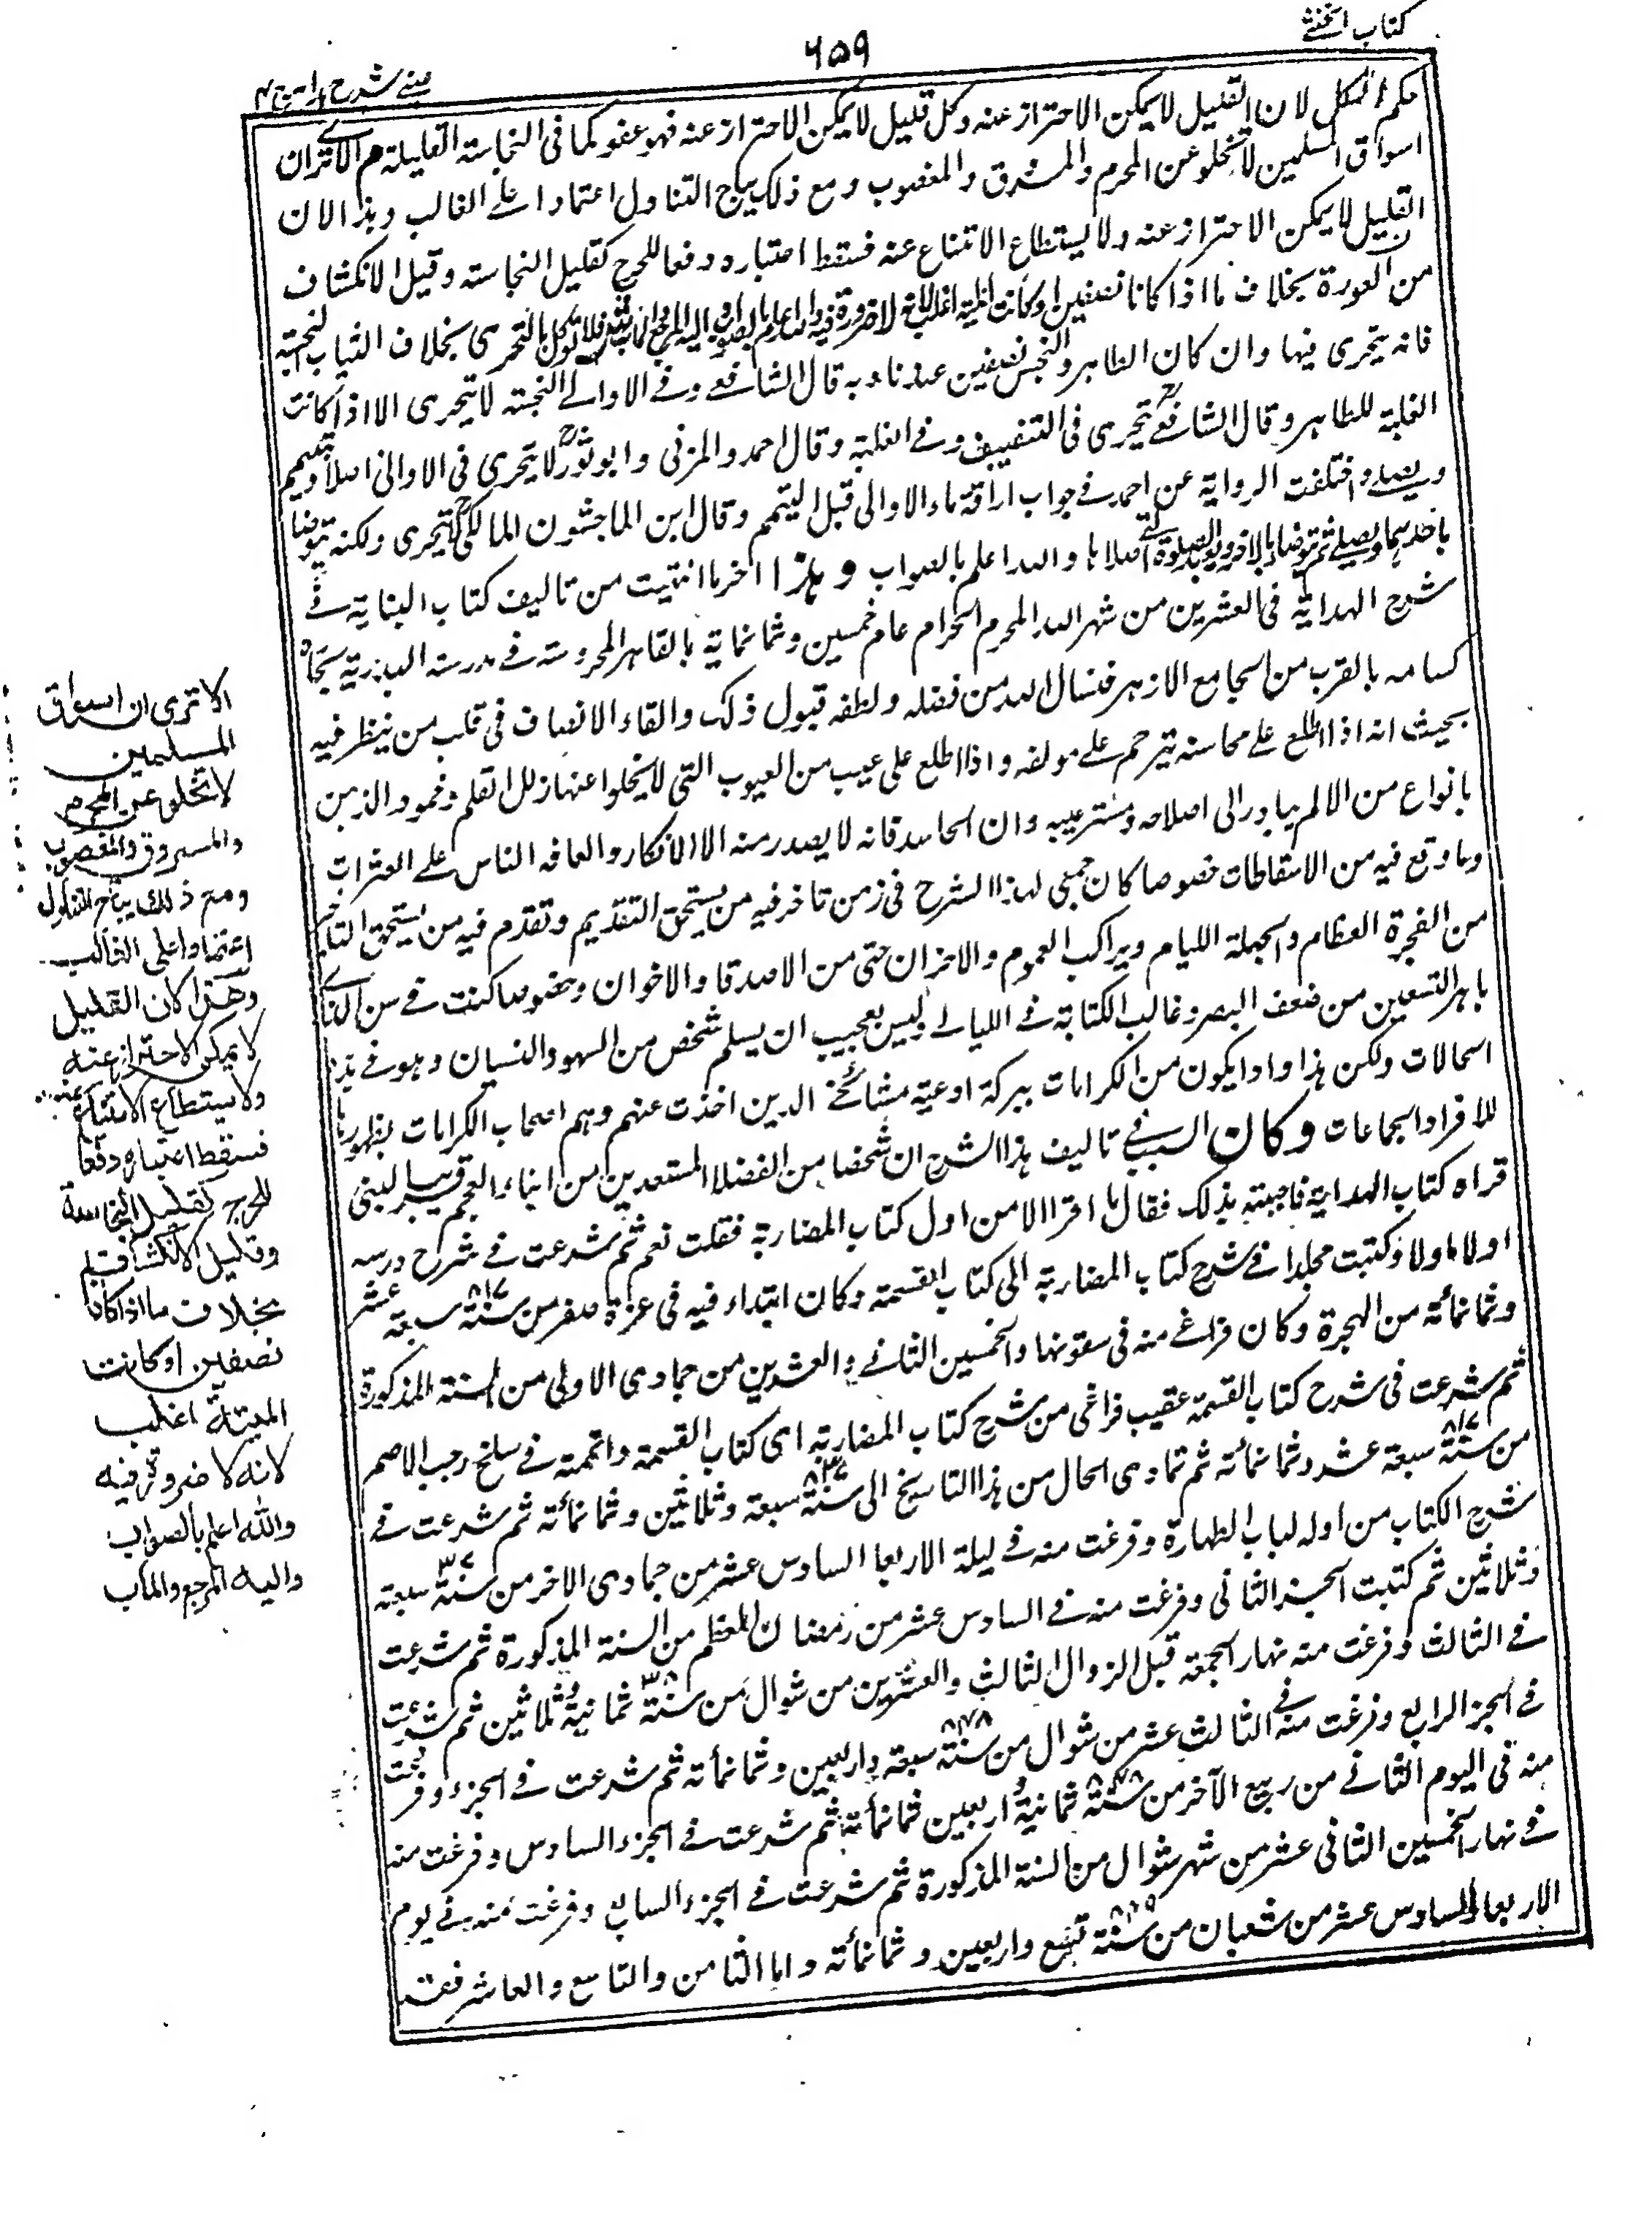 كتاب الخنثى
٦٥٩
عينے شرح ہدایہ ج ٤
حكم الكل لان القليل لا يمكن الاحتراز عنه وكل قليل لا يمكن الاحتراز عنه فهو عفو كما فى النجاسة القليلة م الا ترى ان
اسواق المسلمين لا تخلو عن المحرم والمسروق والمغصوب ومع ذلك يباح التناول اعتمادا علے الغالب وهذا لان
القليل لا يمكن الاحتراز عنه ولا يستطاع الامتناع عنه فسقط اعتباره دفعا للحرج كقليل النجاسة وقليل الانكشاف
من العورة بخلاف ما اذا كانا نصفين او كانت الميتة اغلب لانه لا ضرورة فيه والله اعلم بالصواب واليه المرجع والمآب فلا تؤكل بالتحرى بخلاف الثياب النجسة
فانه يتحرى فيها وان كان الطاهر والنجس نصفين عندنا وبه قال الشافعے وفے الاوانے النجسة لا يتحرى الا اذا كانت
الغلبة للطاهر وقال الشافعے يتحرى فى التنصيف وفے الغلبة وقال احمد والمزنى وابو ثور لا يتحرى فى الاوانى اصلا ويتيمم
ويصلے واختلفت الرواية عن احمد فے جواب اراقة ماء الاوانى قبل التيمم وقال ابن الماجشون المالكى يتحرى ولكنه يتوضا
باحدهما ويصلے ثم يتوضا بالاخر ويعيد الصلوة التے صلاها والله اعلم بالصواب وهذا اخر ما انتهيت من تاليف كتاب البناية فے
شرح الهداية فى العشرين من شهر الله المحرم الحرام عام خمسين وثمانماية بالقاهر المحروسة فے مدرسته البدرية بحارة
كتامه بالقرب من الجامع الازهر فنسال الله من فضله ولطفه قبول ذلك والقاء الانصاف فى قلب من ينظر فيه
بحيث انه اذا اطلع علے محاسنه يترحم علے مولفه واذا اطلع على عيب من العيوب التى لا يخلوا عنها زلل القلم وخمود الذهن
بانواع من الالم يبادر الى اصلاحه وستر عيبه وان الحاسد فانه لا يصدر منه الا الانكار والعافه الناس علے العثرات
وما وقع فيه من الاسقاطات خصوصا كان جمعى لهذا الشرح فى زمن تاخر فيه من يستحق التقديم وتقدم فيه من يستحق التاخير
من الفجرة العظام والجهلة الليام وتراكب الهموم والاحزان حتى من الاصدقا والاخوان وخصوصا كنت فے سن
التسعين من ضعف البصر وغالب الكتابة فے الليالے ليس بعجيب ان يسلم شخص من السهو والنسيان وهو فے هذه
الحالات ولكن هذا وادا يكون من الكرامات ببركة ادعية مشائخے الذين اخذت عنهم وهم اصحاب الكرامات بظهورها
للافراد والجماعات وكان السبب فے تاليف هذا الشرح ان شخصا من الفضلا المستعدين من ابناء العجم
قراة كتاب الهداية فاجبته بذلك فقال ما اقرا الا من اول كتاب المضاربة فقلت نعم ثم شرعت فے شرح درسه
اولا فاولا وكتبت مجلدا فے شرح كتاب المضاربة الى كتاب القسمة وكان ابتداء فيه فى غرة صفر من سنة ٨١٧ سبعة عشر
وثمانمائة من الهجرة وكان فراغے منه فى الخميس الثانے والعشرين من جمادى الاولى من السنة المذكورة
ثم شرعت فى شرح كتاب القسمة عقيب فراغى من شرح كتاب المضاربة اى كتاب القسمة واتممته فے سلخ رجب الاصم
من سنة ٨١٧ سبعة عشر وثمانمائة ثم تمادى الحال من هذا التاريخ الى سنة ٨٣٧ سبعة وثلاثين وثمانمائة ثم شرعت فے
شرح الكتاب من اوله لباب الطهارة وفرغت منه فے ليلة الاربعا السادس عشر من جمادى الاخر من سنة ٣٧ سبعة
وثلاثين ثم كتبت الجزء الثانى وفرغت منه فے السادس عشر من رمضان المعظم من السنة المذكورة ثم شرعت
فے الثالث وفرغت منه نهار الجمعة قبل الزوال الثالث والعشرين من شوال من سنة ٣٨ ثمانية وثلاثين ثم شرعت
فے الجزء الرابع وفرغت منه فے الثالث عشر من شوال من سنة سبعة واربعين وثمانمأة ثم شرعت فے الجزء وفرغت
منه فى اليوم الثانے من ربيع الآخر من سنة ٨٤٨ ثمانية واربعين فثمانمأة ثم شرعت فے الجزء السادس وفرغت منه
فے نهار الخميس الثانى عشر من شهر شوال من السنة المذكورة ثم شرعت فے الجزء السابع وفرغت منه فے يوم
الاربعا السادس عشر من شعبان من سنة تسع واربعين وثمانمائة واما الثامن والتاسع والعاشر فقد
الا ترى ان اسواق
المسلمين
لا تخلو عن المحرم
والمسروق والمغصوب
ومع ذلك يباح التناول
اعتمادا على الغالب
وهذا لان القليل
لا يمكن الاحتراز عنه
ولا يستطاع الامتناع عنه
فسقط اعتباره دفعا
للحرج كقليل النجاسة
وقليل الانكشاف
بخلاف ما اذا كانا
نصفين او كانت
الميتة اغلب
لانه لا ضرورة فيه
والله اعلم بالصواب
واليه المرجع والمآب